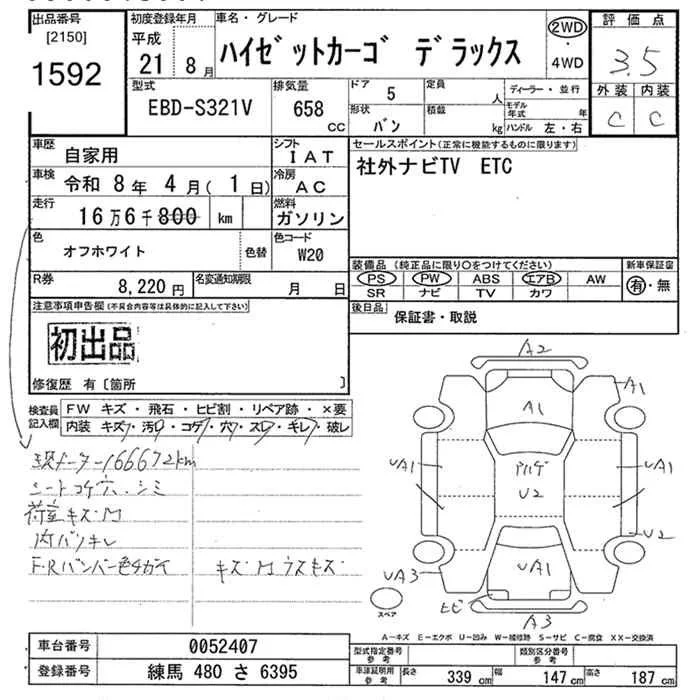 出品番号
[2150]
1592
初度登録年月
平成
21 8月
車名・グレード
ハイゼットカーゴ デラックス
2WD
・
4WD
評価点
3.5
外装 内装
C C
型式
EBD-S321V
排気量
658
CC
ドア
5
定員
人
形状
バン
積載
kg
ディーラー・並行
モデル年式 年
ハンドル 左・右
車歴
自家用
シフト
IAT
車検
令和 8年 4月( 1日)
冷房
AC
走行
16万6千800 km
燃料
ガソリン
色
オフホワイト
色替
色コード
W20
R券
8,220円
名変通知期限
月 日
セールスポイント(正常に機能するものに限ります)
社外ナビTV ETC
装備品 (純正品に限り○をつけてください)
PS PW ABS エアB AW
SR ナビ TV カワ
新車保証書
有・無
後日品
保証書・取説
注意事項申告欄(不具合内容等は具体的に記入して下さい)
初出品
修復歴 有〔箇所 〕
検査員記入欄
FW キズ・飛石・ヒビ割・リペア跡・×要
内装 キズ・汚レ・コゲ・穴・スレ・キレ・破レ
現メーター166672km
シートコゲ穴.シミ
荷室キズ凹
内バリキレ
F.Rバンパー色チガイ キズ凹ウスキズ
A2
A1
A1
UA1
UA1
U2
U2
UA1
UA3
ヒビ
A3
スペア
A−キズ E−エクボ U−凹み W−補修跡 S−サビ C−腐食 XX−交換済
車台番号
0052407
登録番号
練馬 480 さ 6395
型式指定番号
参考
類別区分番号
参考
車庫証明用
参考
長さ 339 cm 幅 147 cm 高さ 187 cm